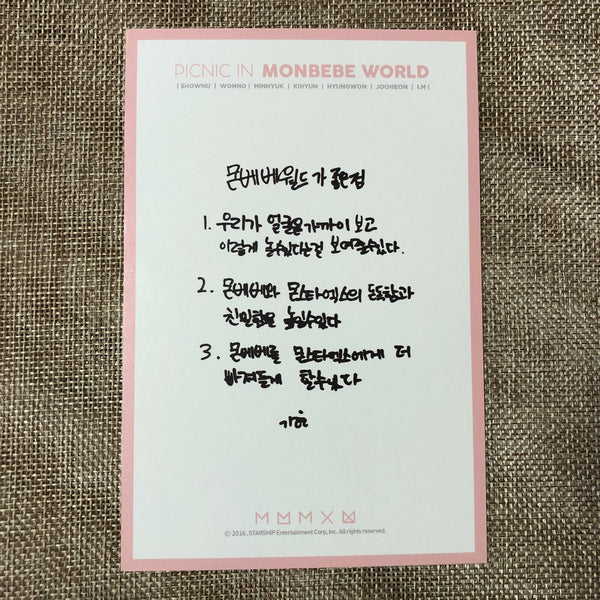 PICNIC IN MONBEBE WORLD
| SHOWNU | WONHO | MINHYUK | KIHYUN | HYUNGWON | JOOHEON | I.M |
몬베베월드가 좋은점
1. 우리가 얼굴을 가까이 보고
이렇게 놀수있다는걸 보여줄수있다.
2. 몬베베와 몬스타엑스의 돈독함과
친밀함을 높일수있다
3. 몬베베를 몬스타엑스에게 더
빠져들게 할수있다
기현
© 2016, STARSHIP Entertainment Corp, Inc. All rights reserved.